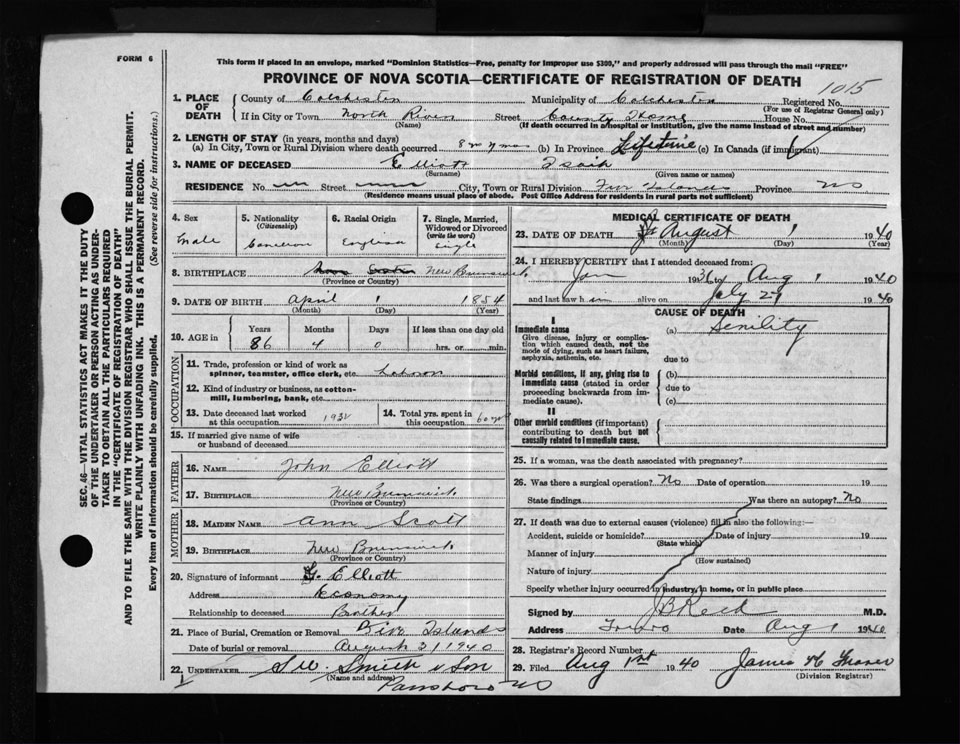 FORM 6
This form if placed in an envelope, marked "Dominion Statistics—Free, penalty for improper use $300," and properly addressed will pass through the mail "FREE"
PROVINCE OF NOVA SCOTIA—CERTIFICATE OF REGISTRATION OF DEATH
1015
1. PLACE OF DEATH
County of Colchester Municipality of Colchester Registered No.
(For use of Registrar General only)
If in City or Town North River Street County Home House No.
(Name) (If death occurred in a hospital or institution, give the name instead of street and number)
2. LENGTH OF STAY (in years, months and days)
(a) In City, Town or Rural Division where death occurred (b) In Province Lifetime (c) In Canada (if immigrant)
3. NAME OF DECEASED Elliott Isaih
(Surname) (Given name or names)
RESIDENCE No. Street City, Town or Rural Division Five Islands Province NS
(Residence means usual place of abode. Post Office Address for residents in rural parts not sufficient)
4. Sex
male
5. Nationality
(Citizenship)
Canadian
6. Racial Origin
English
7. Single, Married, Widowed or Divorced
(write the word)
Single
8. BIRTHPLACE Nova Scotia New Brunswick
(Province or Country)
9. DATE OF BIRTH April 1 1854
(Month) (Day) (Year)
10. AGE in
Years Months Days If less than one day old
86 4 0 hrs. or min.
OCCUPATION
11. Trade, profession or kind of work as spinner, teamster, office clerk, etc. Labour
12. Kind of industry or business, as cotton-mill, lumbering, bank, etc.
13. Date deceased last worked at this occupation 193
14. Total yrs. spent in this occupation 60
15. If married give name of wife or husband of deceased
FATHER
16. NAME John Elliott
17. BIRTHPLACE New Brunswick
(Province or Country)
MOTHER
18. MAIDEN NAME Ann Scott
19. BIRTHPLACE New Brunswick
(Province or Country)
20. Signature of informant Elliott
Address Economy
Relationship to deceased Brother
21. Place of Burial, Cremation or Removal Five Islands
Date of burial or removal August 3 1940
22. UNDERTAKER Smith & Son
(Name and address)
Parrsboro NS
MEDICAL CERTIFICATE OF DEATH
23. DATE OF DEATH August 1 1940
(Month) (Day) (Year)
24. I HEREBY CERTIFY that I attended deceased from:
Jan 1936 to Aug 1 1940
and last saw him alive on July 27 1940
CAUSE OF DEATH
I
Immediate cause
Give disease, injury or complication which caused death, not the mode of dying, such as heart failure, asphyxia, asthenia, etc.
(a) Senility
due to
Morbid conditions, if any, giving rise to immediate cause (stated in order proceeding backwards from immediate cause).
(b)
due to
(c)
II
Other morbid conditions (if important) contributing to death but not causally related to immediate cause.
25. If a woman, was the death associated with pregnancy?
26. Was there a surgical operation? No Date of operation 19
State findings Was there an autopsy? No
27. If death was due to external causes (violence) fill in also the following:—
Accident, suicide or homicide? Date of injury 19
(State which)
Manner of injury
(How sustained)
Nature of injury
Specify whether injury occurred in industry, in home, or in public place
Signed by J B Reid M.D.
Address Truro Date Aug 1 1940
28. Registrar's Record Number
29. Filed Aug 1st 1940 James H Fraser
(Division Registrar)
SEC. 46—VITAL STATISTICS ACT MAKES IT THE DUTY
OF THE UNDERTAKER OR PERSON ACTING AS UNDER-
TAKER TO OBTAIN ALL THE PARTICULARS REQUIRED
IN THE "CERTIFICATE OF REGISTRATION OF DEATH"
AND TO FILE THE SAME WITH THE DIVISION REGISTRAR WHO SHALL ISSUE THE BURIAL PERMIT.
WRITE PLAINLY WITH UNFADING INK. THIS IS A PERMANENT RECORD.
Every item of information should be carefully supplied. (See reverse side for instructions.)